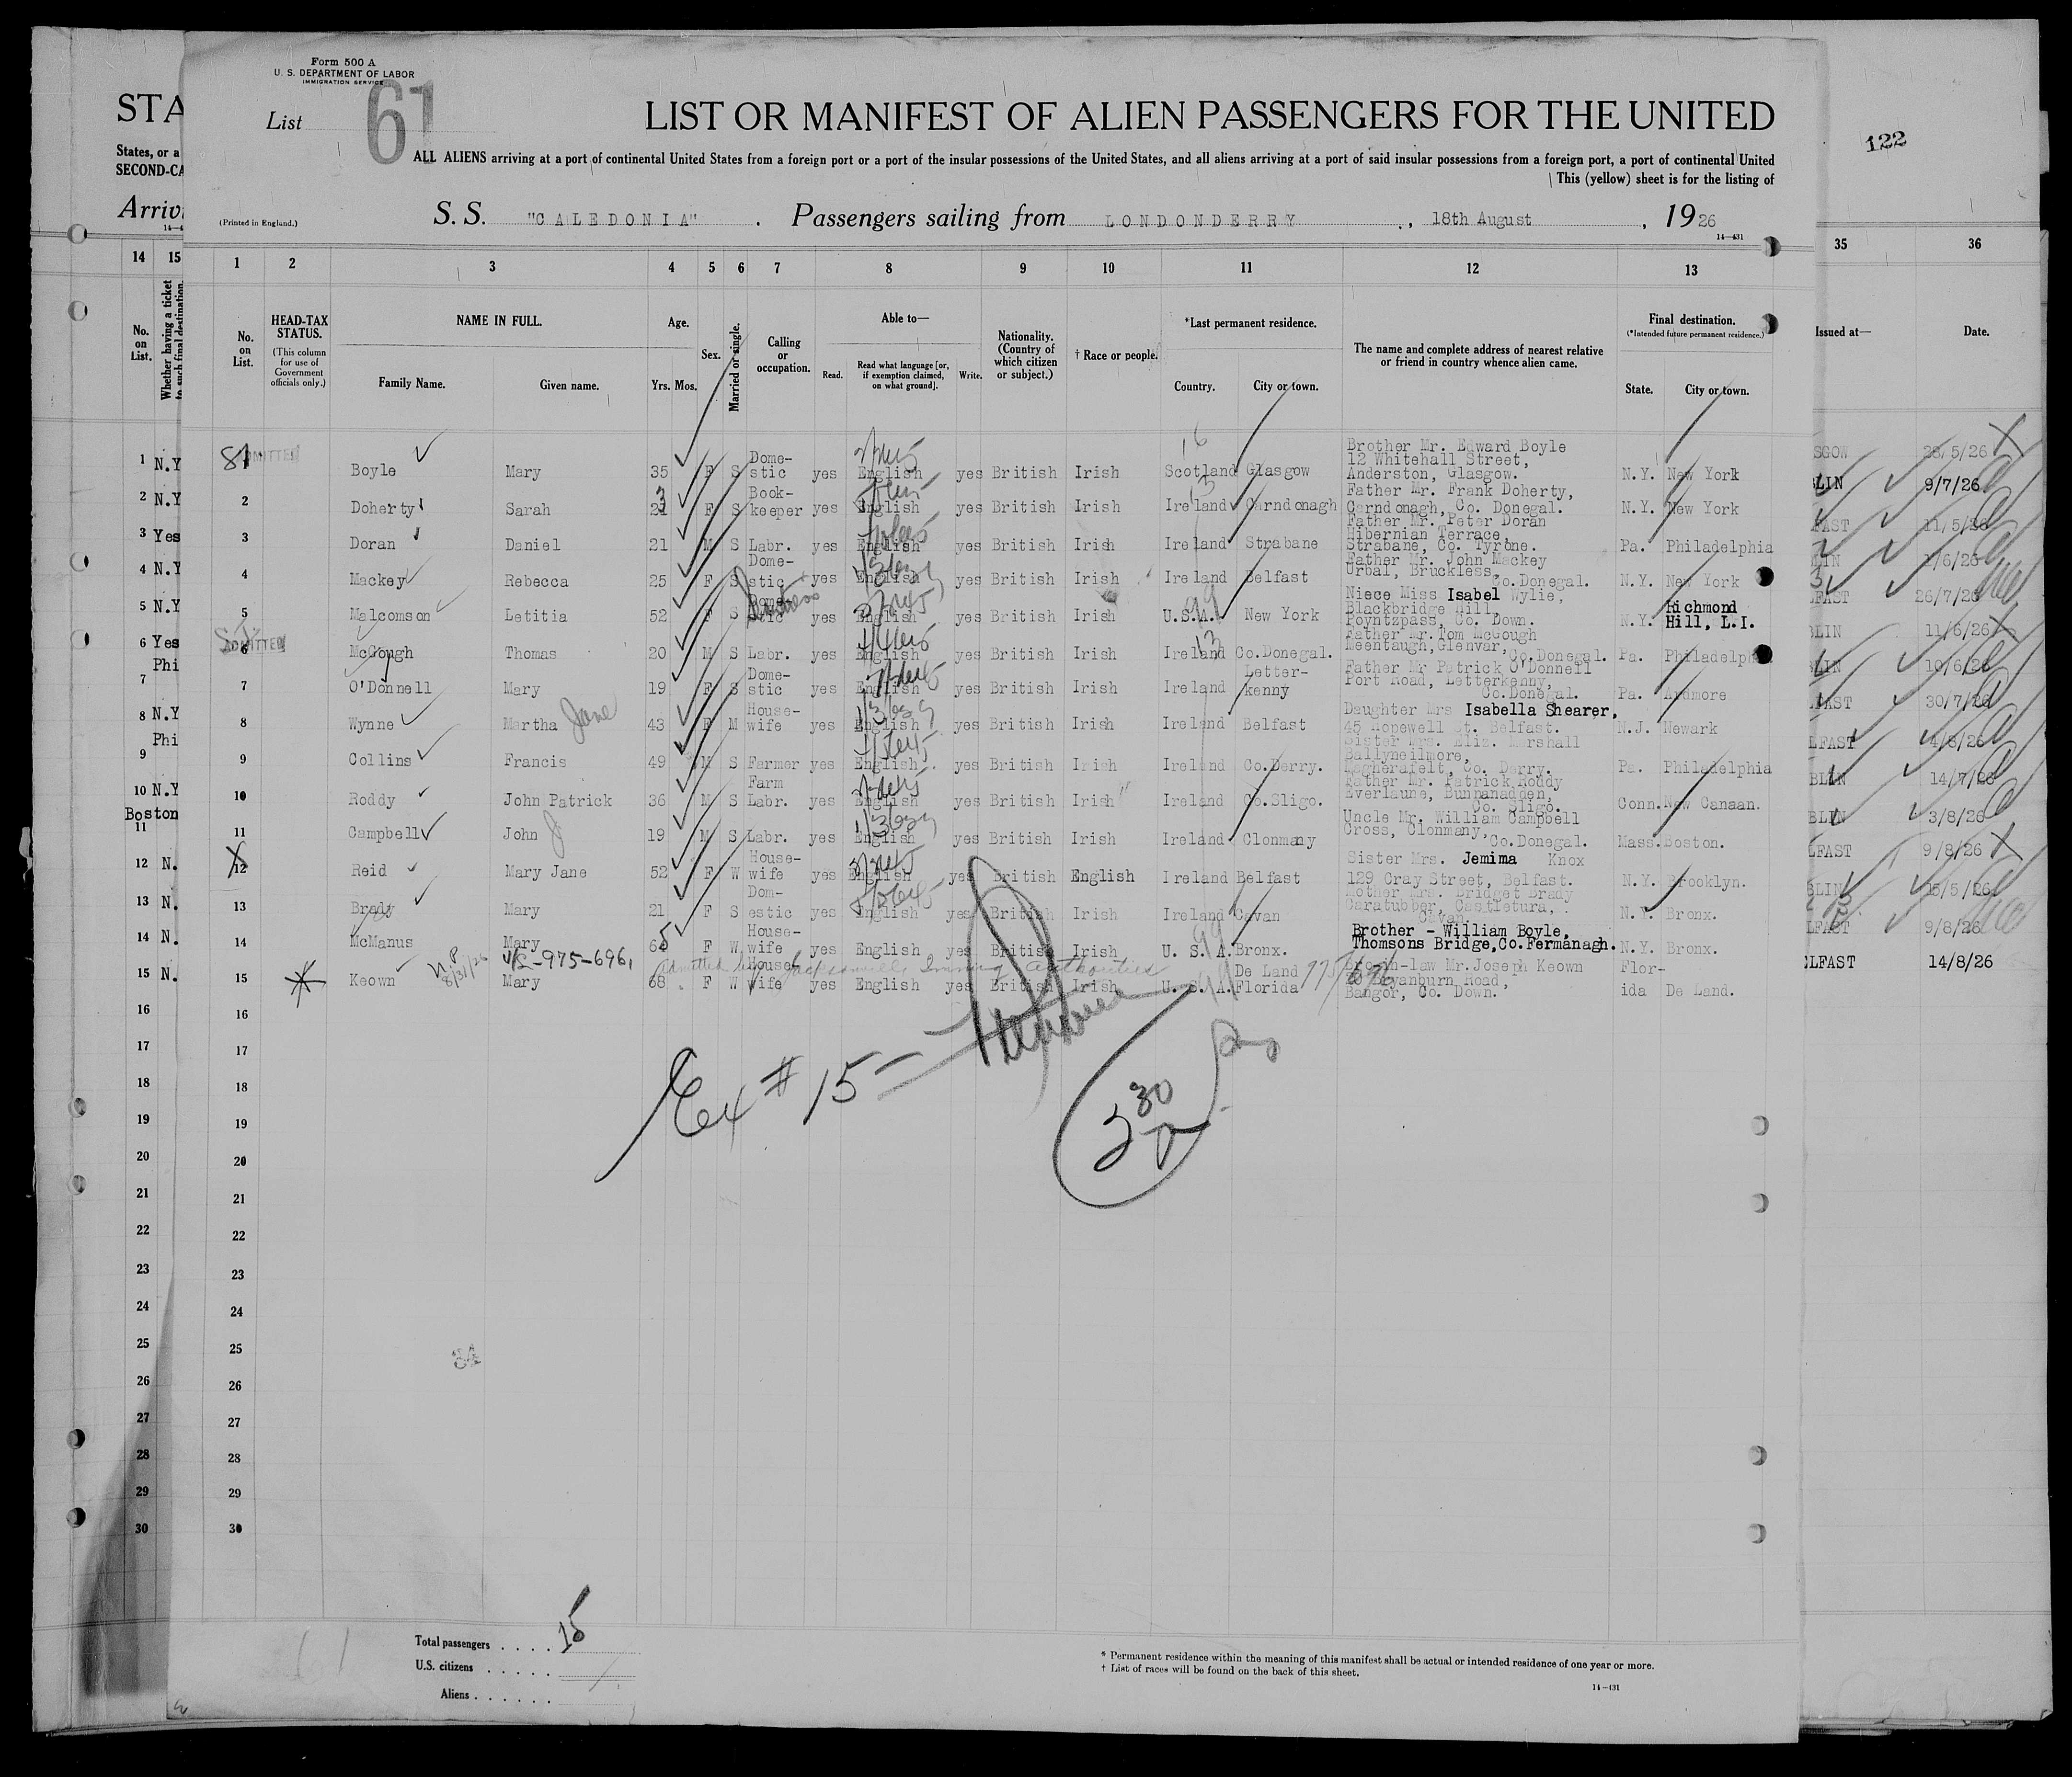 Form 500 A
U. S. DEPARTMENT OF LABOR
IMMIGRATION SERVICE
STA
List 61
LIST OR MANIFEST OF ALIEN PASSENGERS FOR THE UNITED
122
States, or a
ALL ALIENS arriving at a port of continental United States from a foreign port or a port of the insular possessions of the United States, and all aliens arriving at a port of said insular possessions from a foreign port, a port of continental United
SECOND-CA
This (yellow) sheet is for the listing of
Arriv
(Printed in England.)
S. S. "CALEDONIA". Passengers sailing from LONDONDERRY, 18th August, 1926
14—431
14 15 1 2 3 4 5 6 7 8 9 10 11 12 13 35 36
No. on List.
Whether having a ticket to such final destination.
No. on List.
HEAD-TAX STATUS.
(This column for use of Government officials only.)
NAME IN FULL.
Family Name. Given name.
Age.
Yrs. Mos.
Sex.
Married or single.
Calling or occupation.
Able to—
Read. Read what language [or, if exemption claimed, on what ground]. Write.
Nationality. (Country of which citizen or subject.)
† Race or people.
*Last permanent residence.
Country. City or town.
The name and complete address of nearest relative or friend in country whence alien came.
Final destination.
(*Intended future permanent residence.)
State. City or town.
Issued at— Date.
1 N.Y ADMITTED Boyle Mary 35 F S Dome-stic yes English yes British Irish Scotland Glasgow Brother Mr. Edward Boyle 12 Whitehall Street, Anderston, Glasgow. N.Y. New York SGOW 28/5/26
2 N.Y 2 Doherty Sarah F S Book-keeper yes English yes British Irish Ireland Carndonagh Father Mr. Frank Doherty, Carndonagh, Co. Donegal. N.Y. New York BLIN 9/7/26
3 Yes 3 Doran Daniel 21 M S Labr. yes English yes British Irish Ireland Strabane Father Mr. Peter Doran Hibernian Terrace, Strabane, Co. Tyrone. Pa. Philadelphia FAST 11/5/26
4 N.Y 4 Mackey Rebecca 25 F S Dome-stic yes English yes British Irish Ireland Belfast Father Mr. John Mackey Urbal, Bruckless, Co.Donegal. N.Y. New York LIN 1/6/26
5 N.Y 5 Malcomson Letitia 52 F S Dome-stic yes English yes British Irish U.S.A. New York Niece Miss Isabel Wylie, Blackbridge Hill, Poyntzpass, Co. Down. N.Y. Richmond Hill, L.I. FAST 26/7/26
6 Yes Phi ADMITTED 6 McGough Thomas 20 M S Labr. yes English yes British Irish Ireland Co.Donegal. Father Mr.Tom McGough Meentaugh,Glenvar, Co.Donegal. Pa. Philadelph BLIN 11/6/26
7 7 O'Donnell Mary 19 F S Dome-stic yes English yes British Irish Ireland Letter-kenny Father Mr Patrick O'Donnell Port Road, Letterkenny, Co.Donegal. Pa. Ardmore LIN 10/6/26
8 N.Y Phi 8 Wynne Martha Jane 43 F M House-wife yes English yes British Irish Ireland Belfast Daughter Mrs Isabella Shearer, 45 Hopewell St. Belfast. N.J. Newark FAST 30/7/26
9 9 Collins Francis 49 M S Farmer yes English yes British Irish Ireland Co.Derry. Sister Mrs. Eliz. Marshall Ballyneilmore, Magherafelt, Co. Derry. Pa. Philadelphia LFAST 4/8/26
10 N.Y Boston 10 Roddy John Patrick 36 M S Farm Labr. yes English yes British Irish Ireland Co.Sligo. Father Mr. Patrick Roddy Everlaune, Bunnanadden, Co. Sligo. Conn. New Canaan. BLIN 14/7/26
11 11 Campbell John J 19 M S Labr. yes English yes British Irish Ireland Clonmany Uncle Mr. William Campbell Cross, Clonmany, Co.Donegal. Mass. Boston. BLIN 3/8/26
12 N. 12 Reid Mary Jane 52 F W House-wife yes English yes British English Ireland Belfast Sister Mrs. Jemima Knox 129 Cray Street, Belfast. N.Y. Brooklyn. LFAST 9/8/26
13 N. 13 Brady Mary 21 F S Dom-estic yes English yes British Irish Ireland Cavan Mother Mrs. Bridget Brady Caratubber, Castletura, Cavan. N.Y. Bronx. BLIN 15/5/26
14 N. 14 McManus Mary 65 F W House-wife yes English yes British Irish U. S. A. Bronx. Brother - William Boyle, Thomsons Bridge,Co.Fermanagh. N.Y. Bronx. LFAST 9/8/26
N.P 8/31/26 V/S-975-696, Admitted by Jacksonville Immig authorities 975/696
15 N. 15 Keown Mary 68 F W House-wife yes English yes British Irish U. S. A. De Land Florida Bro-in-law Mr.Joseph Keown Bryanburn Road, Bangor, Co. Down. Flor-ida De Land. ELFAST 14/8/26
16 16
17 17
Ex # 15 -
18 18
2 30
19 19
20 20
21 21
22 22
23 23
24 24
25 25
34
26 26
27 27
28 28
29 29
30 30
61
Total passengers . . . . 15
U.S. citizens . . . . .
Aliens . . . . . .
* Permanent residence within the meaning of this manifest shall be actual or intended residence of one year or more.
† List of races will be found on the back of this sheet.
14—431